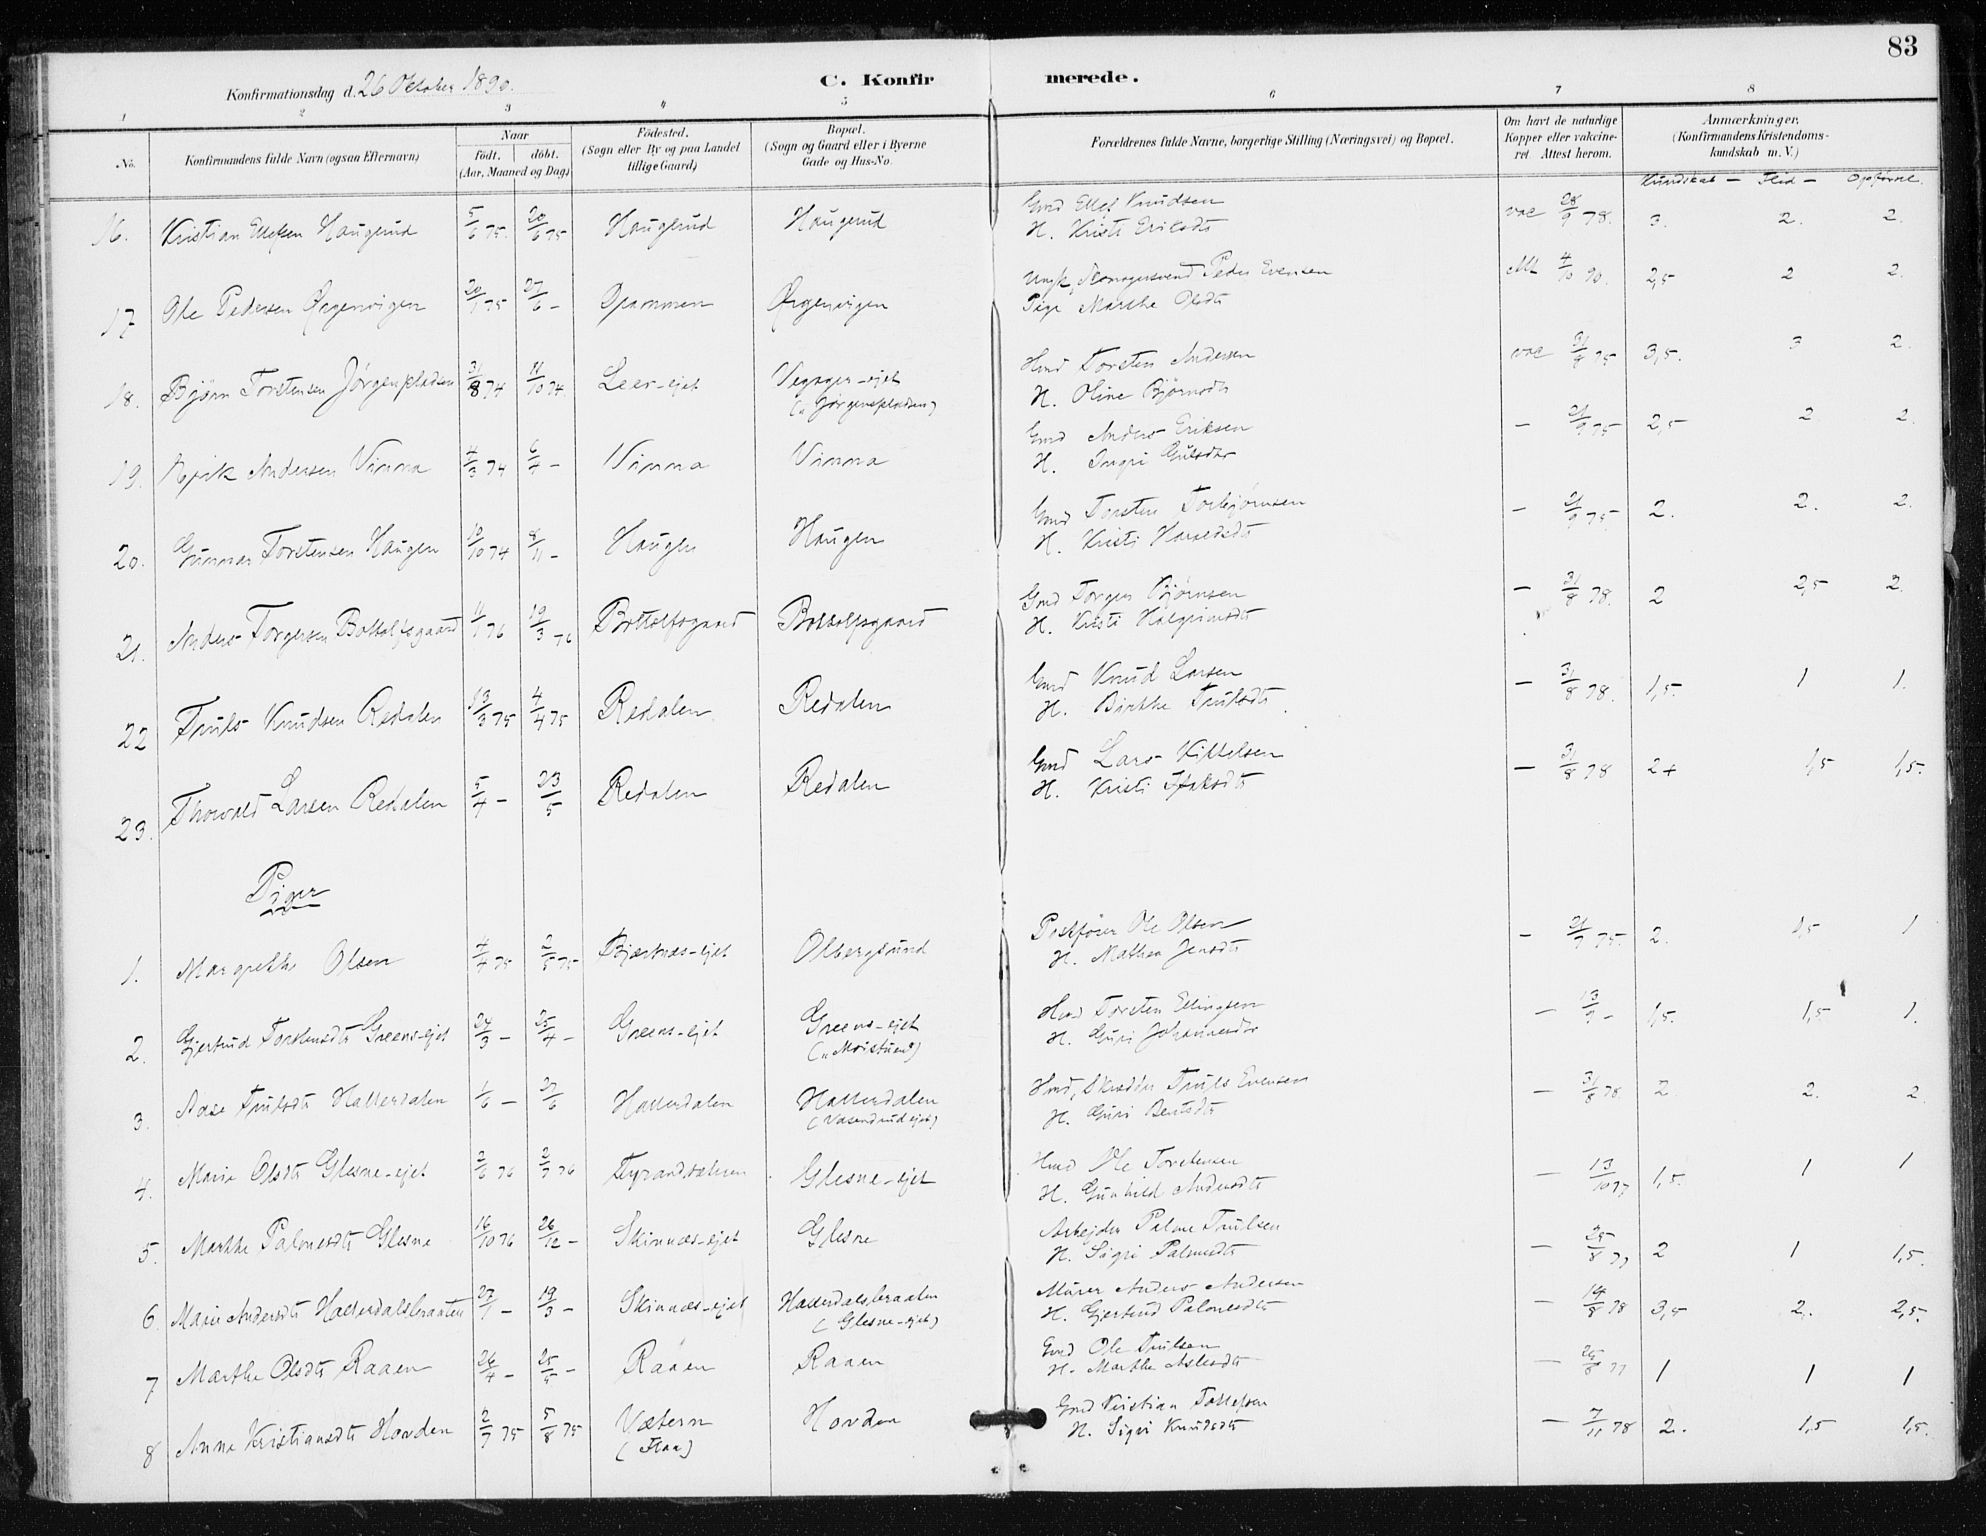 83
C. Konfirmerede.
Konfirmationsdag d. 26 Oktober 1890.
1 2 3 4 5 6 7 8
No. Konfirmandens fulde Navn (ogsaa Efternavn) Naar født. døbt. (Aar, Maaned og Dag) Fødested. (Sogn eller By og paa Landet tillige Gaard) Bopæl. (Sogn og Gaard eller i Byerne Gade og Hus-No. Forældrenes fulde Navne, borgerlige Stilling (Næringsvei) og Bopæl. Om havt de naturlige Kopper eller vakcineret Attest herom. Anmærkninger. (Konfirmandens Kristendomskundskab m. V.)
Kundskab – Flid – Opførsel.
16. Kristian Ellefsen Haugerud 5/6 75. 20/6 75 Haugerud Haugerud Gmd Ellef Knudsen vac 28/9 78. 3. 2. 2.
H. Kristi Eriksdt
17. Ole Pedersen Ørgenvigen 20/1 75 27/6 – Drammen Ørgenvigen Pedes Evensen Att 4/10 90. 2,5 2 2.
Pige Marthe Olsdt
18. Bjørn Torstensen Jørgenpladsen 31/8 74 11/10 74. Leer-ejet Vegager-ejet Hmd Torsten Andersen vac 21/9 75 3,5. 3 2.
(" Jørgenspladsen) H. Oline Bjørnsdt
19. Andersen Vinna 4/3 74 6/4 – Vinna Vinna Gmd Anders Eriksen – 21/9 75 2,5 2 2.
H. Ingri Gulsdtr
20. Gunnar Torstensen Haugen 10/10 74 8/11 – Haugen Haugen Gmd Torsten Torbjørnsen – 21/9 75 – 2. 2. 2.
H. Kristi Haraldsdt
21. Anders Torgersen Bottolfsgaard 11/1 76 19/3 76 Bottolfsgaard Bottolfsgaard Gmd Torger Bjørnsen – 31/8 78. 2 2,5 2.
H. Kristi Halgrimsdt
22 Truls Knudsen Redalen 13/3 75 4/4 75 Redalen Redalen Gmd Knud Larsen – 31/8 78. 1,5. 1 1.
H. Birthe Trulsdt
23. Thorvald Larsen Redalen 5/4 – 23/5 Redalen Redalen Gmd Lars Kittelsen – 31/8 78 2+ 1,5 1,5.
H. Kristi Isaksdt
Piger
1. Margrethe Olsen 4/4 75 2/5 75 Bjertnæs-ejet Olbergsund Postfører Ole Olsen – 21/9 75. 2. 1,5 1
H. Mathea Jensdt
2. Gjertrud Torstensdt Greens-ejet 24/3 – 25/4 – Greens-ejet Greens-ejet Hmd Torsten Ellingsen – 13/9 – 1,5. 1,5 1.
(" Moistuen) H. Guri Johannesdtr
3. Aase Trulsdt Hallerdalen 1/6 – 27/6 Hallerdalen Hallerdalen Hmd, Skrædder Truls Evensen – 31/8 78. 2 2. 2.
(Vasendrud ejet) H. Guri Bentsdt
4. Marie Olsdt Glesne-ejet 2/6 76 2/7 76 Glesne-ejet Hmd Ole Torstensen – 13/10 77 1,5. 1 1
H. Gunhild Andersdt
5. Marthe Palmesdt Glesne 16/10 76 26/12 – Skinnæs-ejet Glesne Arbejder Palme Trulsen – 25/8 77 2 1 1,5.
H. Sigri Palmesdt
6. Marie Andersdt Hallerdalsbraaten 27/1 – 19/3 – Skinnæs-ejet Hallerdalsbraaten Murer Anders Andersen – 14/8 78 3,5 2. 2,5.
(Glesne-ejet) H. Gjertrud Palmesdt
7 Marthe Olsdt Raaen 26/4 – 25/5 – Raaen Raaen Gmd Ole Trulsen – 25/8 77 1 1 1
H. Marthe Aslesdt
8 Anne Kristiansdt Hovden 2/7 75 5/8 75 Vætern Hovden Gmd Kristian Tollefsen – 7/11 78 2. 1,5 1,5.
(Flaa) H. Sigri Knudsdt